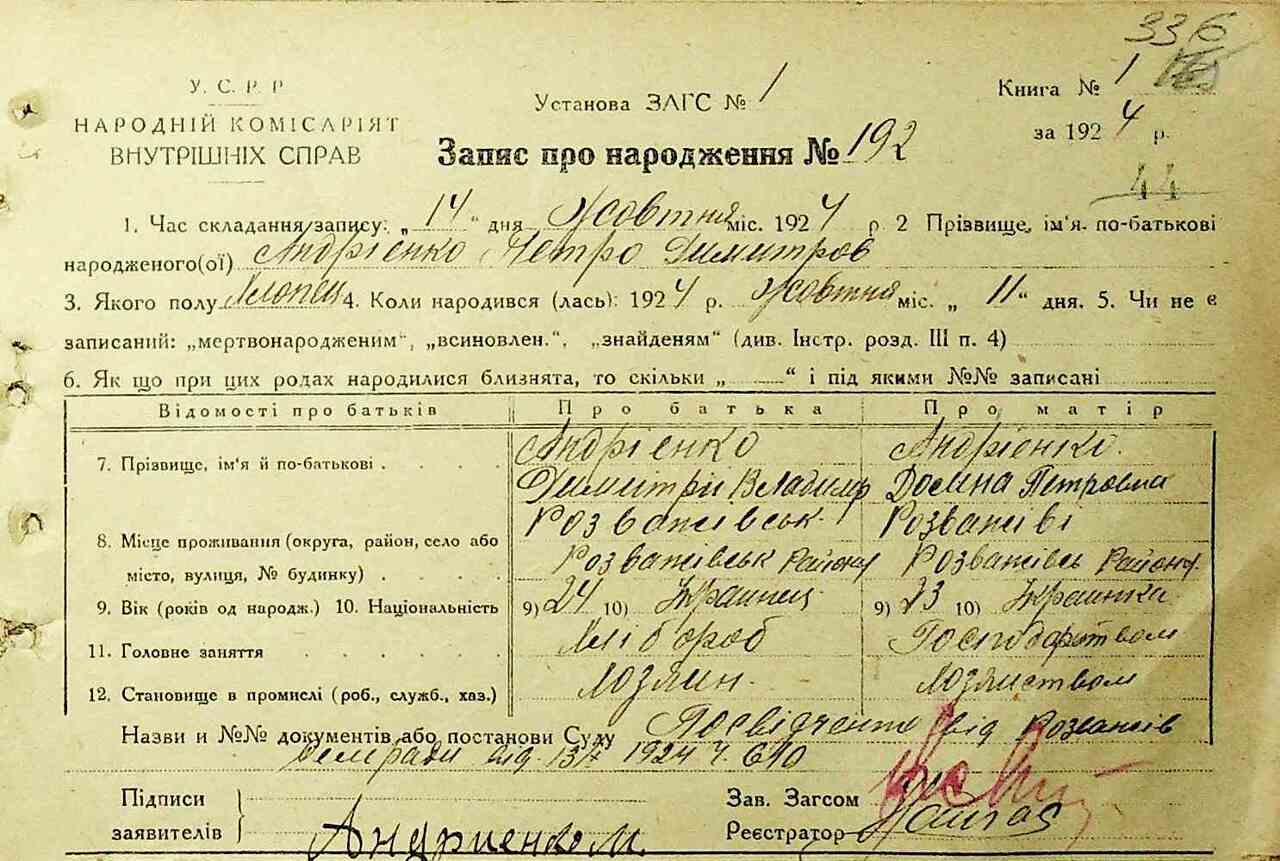 336
У. С. Р. Р
НАРОДНІЙ КОМІСАРІЯТ
ВНУТРІШНІХ СПРАВ
Установа ЗАГС № 1
Книга № 1
за 1924 р.
Запис про народження № 192
44
1. Час складання запису: „ 14 " дня Жовтня міс. 1924 р. 2 Прізвище, ім'я. по-батькові
народженого(ої) Андрієнко Петро Димитров
3. Якого полу Хлопец 4. Коли народився (лась): 1924 р. Жовтня міс. „ 11 " дня. 5. Чи не є
записаний: „мертвонародженим", „всиновлен.", „знайденям" (див. Інстр. розд. III п. 4)
6. Як що при цих родах народилися близнята, то скільки „ — " і під якими №№ записані
Відомості про батьків Про батька Про матір
7. Прізвище, ім'я й по-батькові . . . . Андрієнко Андріенко.
Димитрій Владимр Петровна
8. Місце проживання (округа, район, село або Розважівськ. Розважіві
місто, вулиця, № будинку) . . . . Розважівськ Району Розважівсь Району
9. Вік (років од народж.) 10. Національність 9) 24 10) Украинец 9) 23 10) Украинка
11. Головне заняття . . . . . Хлібороб Господарством
12. Становище в промислі (роб., служб., хаз.) Хозяин. Хозяиством
Назви и №№ документів або постанови Суду від Розважів
сельради від 13/X 1924 ч. 610
Підписи
заявителів Андриенко М.
Зав. Загсом
Реєстратор